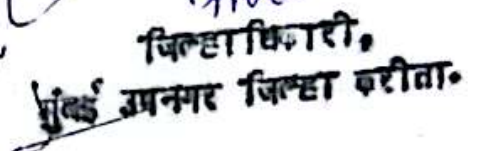 जिल्हाधिकारी,
मुंबई उपनगर जिल्हा करीता.